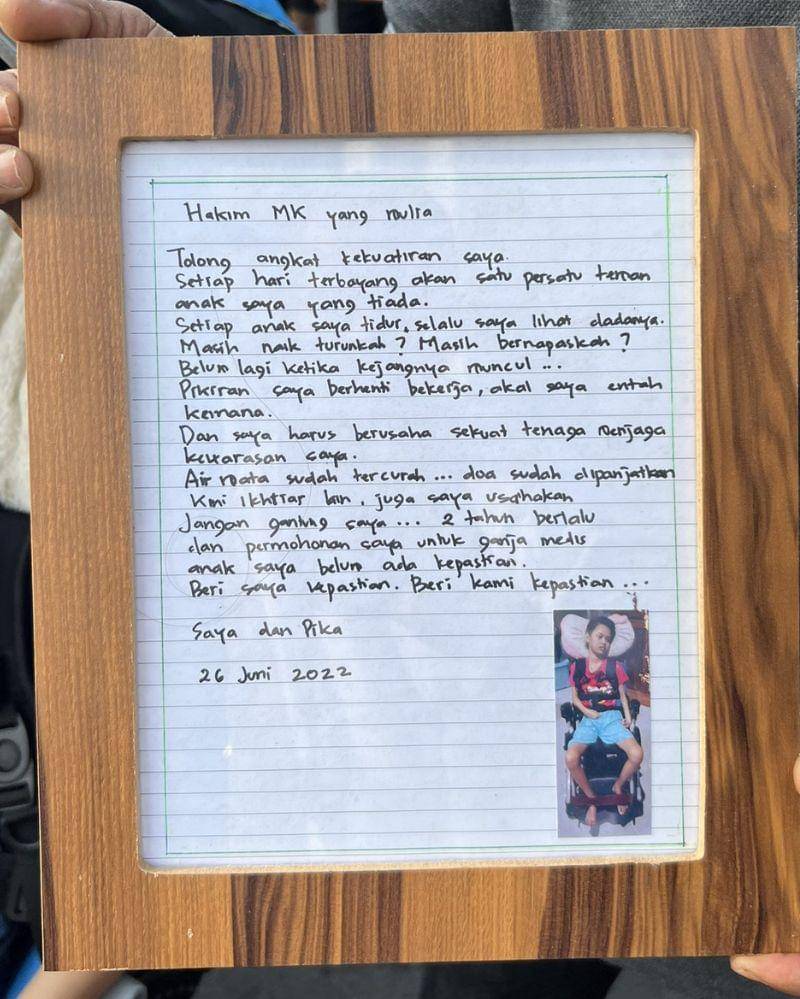 Hakim MK yang mulia
Tolong angkat kekuatiran saya.
Setiap hari terbayang akan satu persatu teman
anak saya yang tiada.
Setiap anak saya tidur, selalu saya lihat dadanya.
Masih naik turunkah ? Masih bernapaskah ?
Belum lagi ketika kejangnya muncul ...
Pikiran saya berhenti bekerja, akal saya entah
kemana.
Dan saya harus berusaha sekuat tenaga menjaga
kewarasan saya.
Air mata sudah tercurah ... doa sudah dipanjatkan
Kini Ikhtiar lain, juga saya usahakan
Jangan gantung saya ... 2 tahun berlalu
dan permohonan saya untuk ganja medis
anak saya belum ada kepastian.
Beri saya kepastian. Beri kami kepastian ...
Saya dan Pika
26 Juni 2022